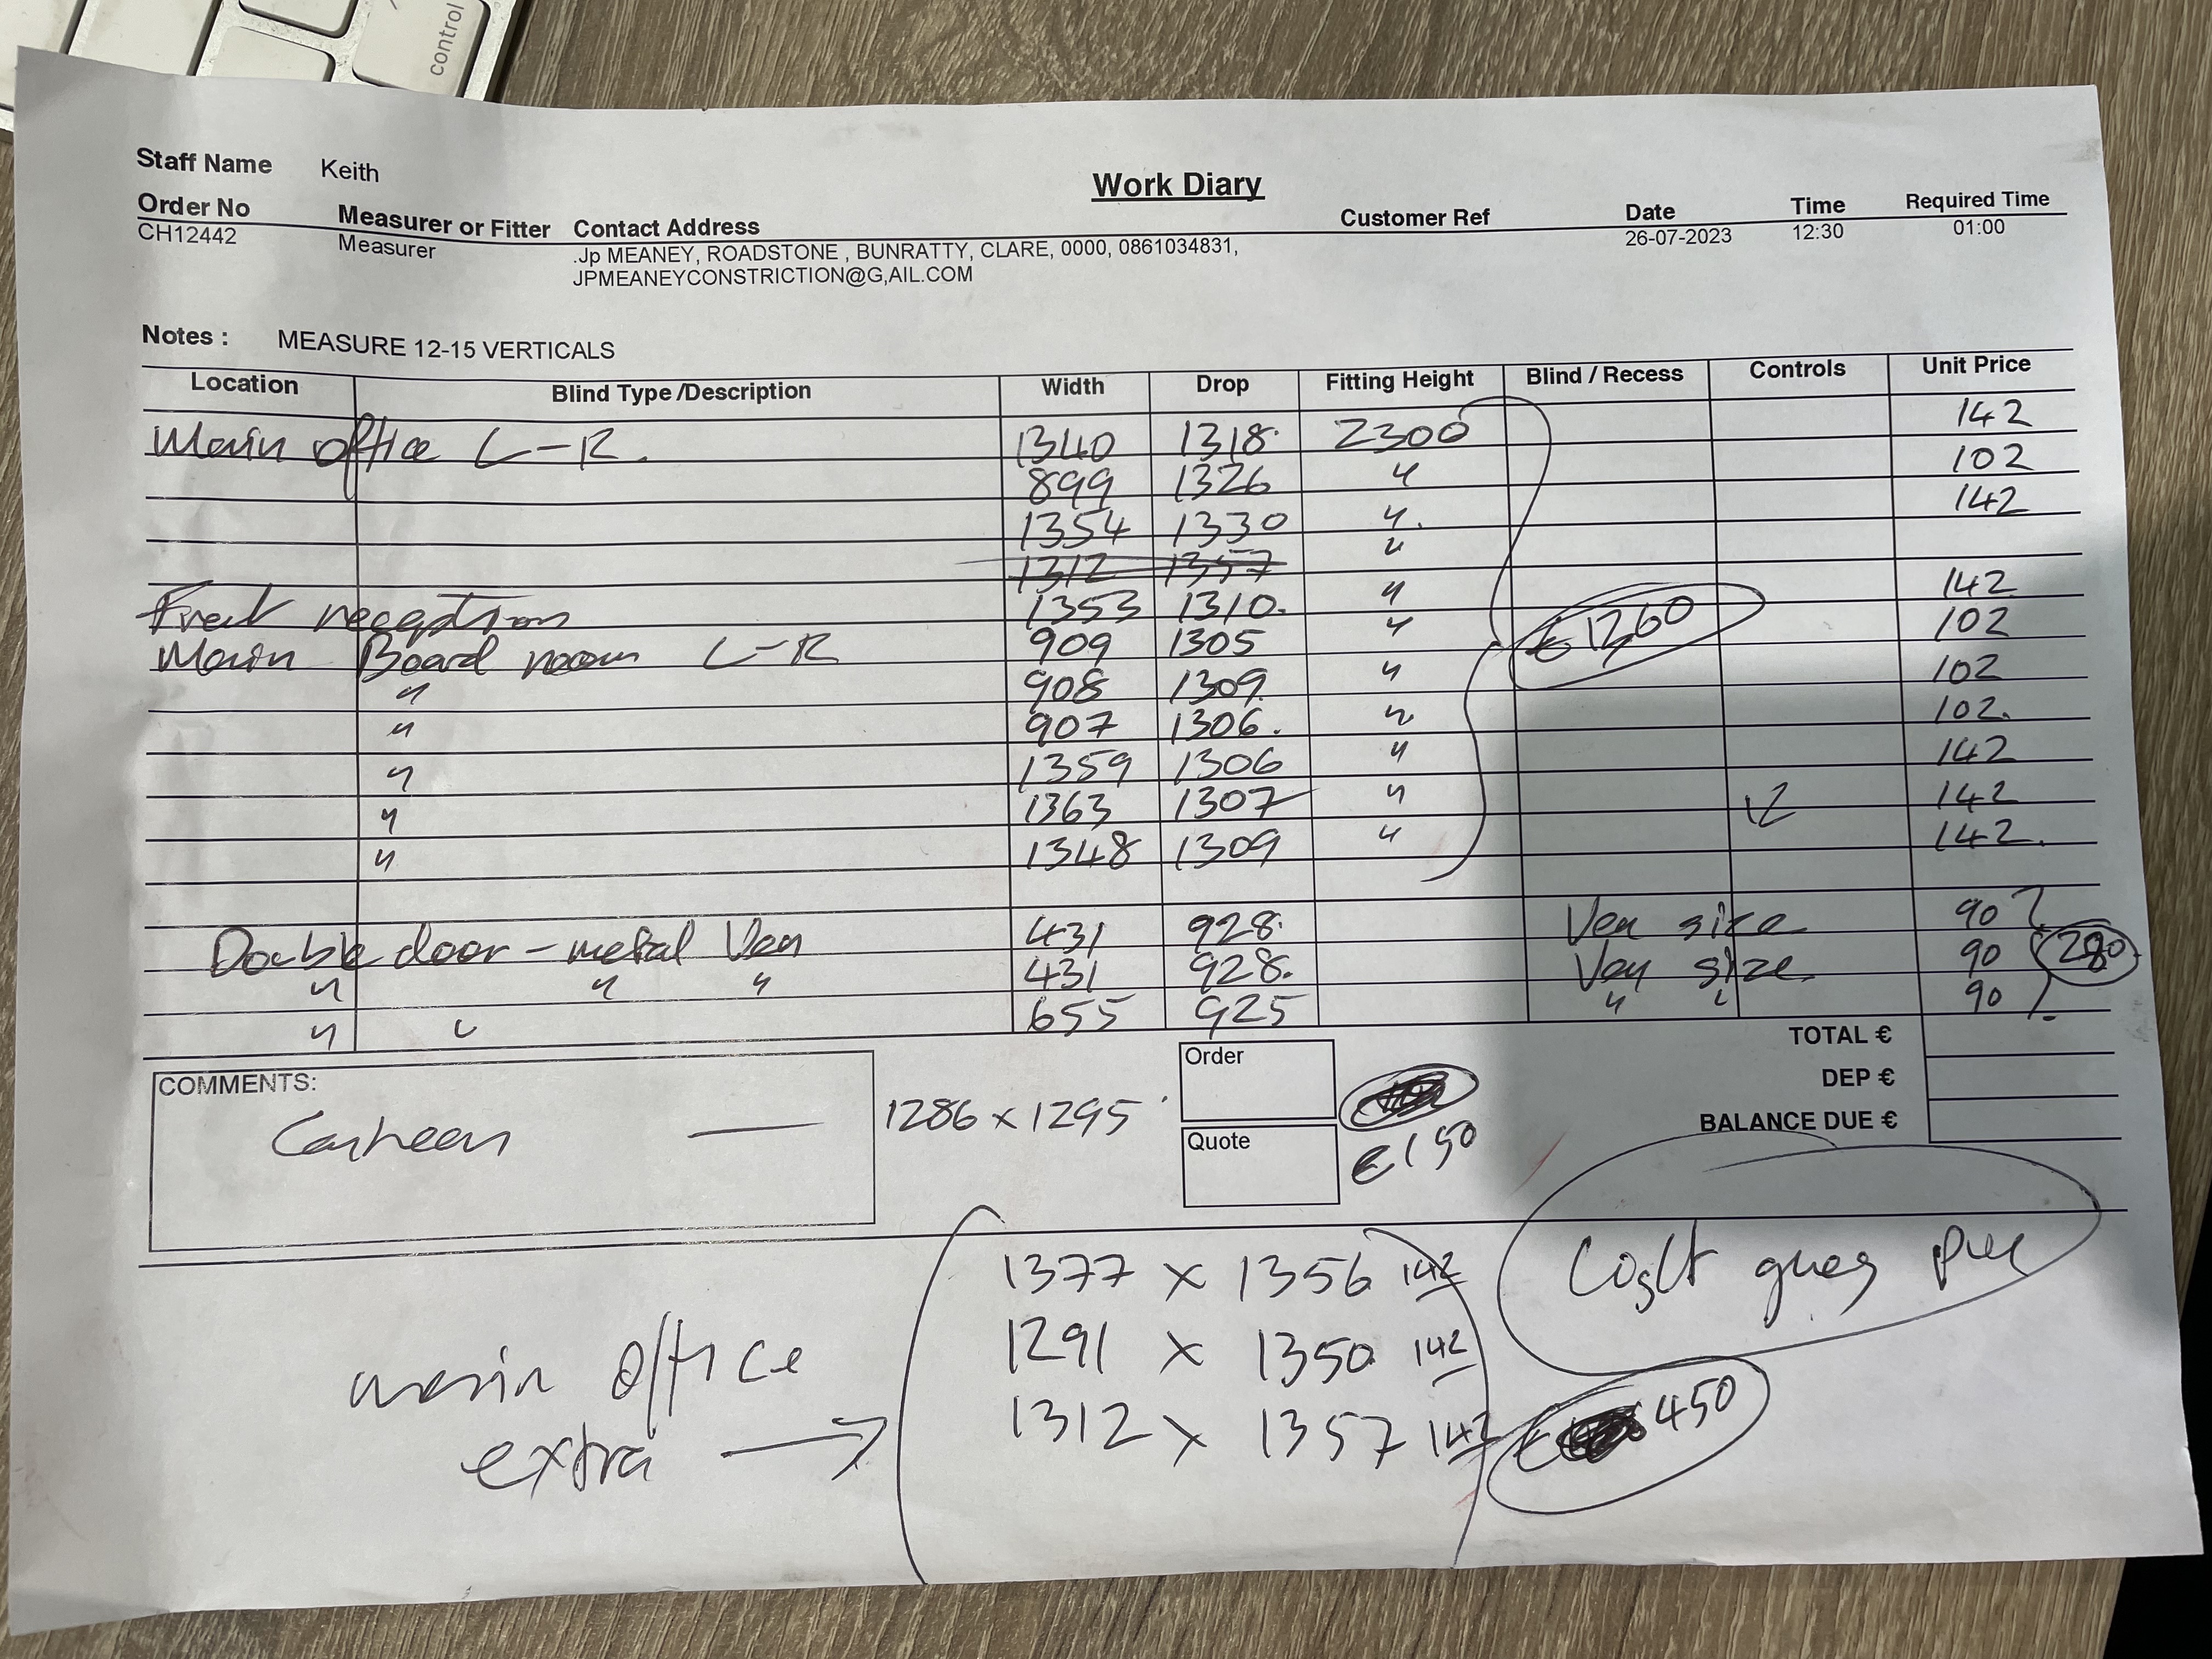 control
Work Diary
Staff Name Keith
Order No Measurer or Fitter Contact Address Customer Ref Date Time Required Time
CH12442 Measurer .Jp MEANEY, ROADSTONE , BUNRATTY, CLARE, 0000, 0861034831, 26-07-2023 12:30 01:00
JPMEANEYCONSTRICTION@G,AIL.COM
Notes : MEASURE 12-15 VERTICALS
Location Blind Type /Description Width Drop Fitting Height Blind / Recess Controls Unit Price
Main office L-R. 1340 1318. 2300 142
899 1326 " 102
1354 1330 " 142
1312 1357 "
Front reception 1353 1310. " 142
Main Board room L-R 909 1305 " €1260 102
" 908 1309. " 102
" 907 1306. " 102.
" 1359 1306 " 142
" 1363 1307 " 142
" 1348 1309 " 142.
Double door - metal Ven 431 928. Ven size 90
" " " 431 928. Ven size. 90 280
" " 655 925 " " 90
TOTAL €
DEP €
BALANCE DUE €
COMMENTS:
Canteen — 1286 x 1295
Order
Quote
€150
main office
extra →
1377 x 1356 142
1291 x 1350 142
1312 x 1357 142
€ 450